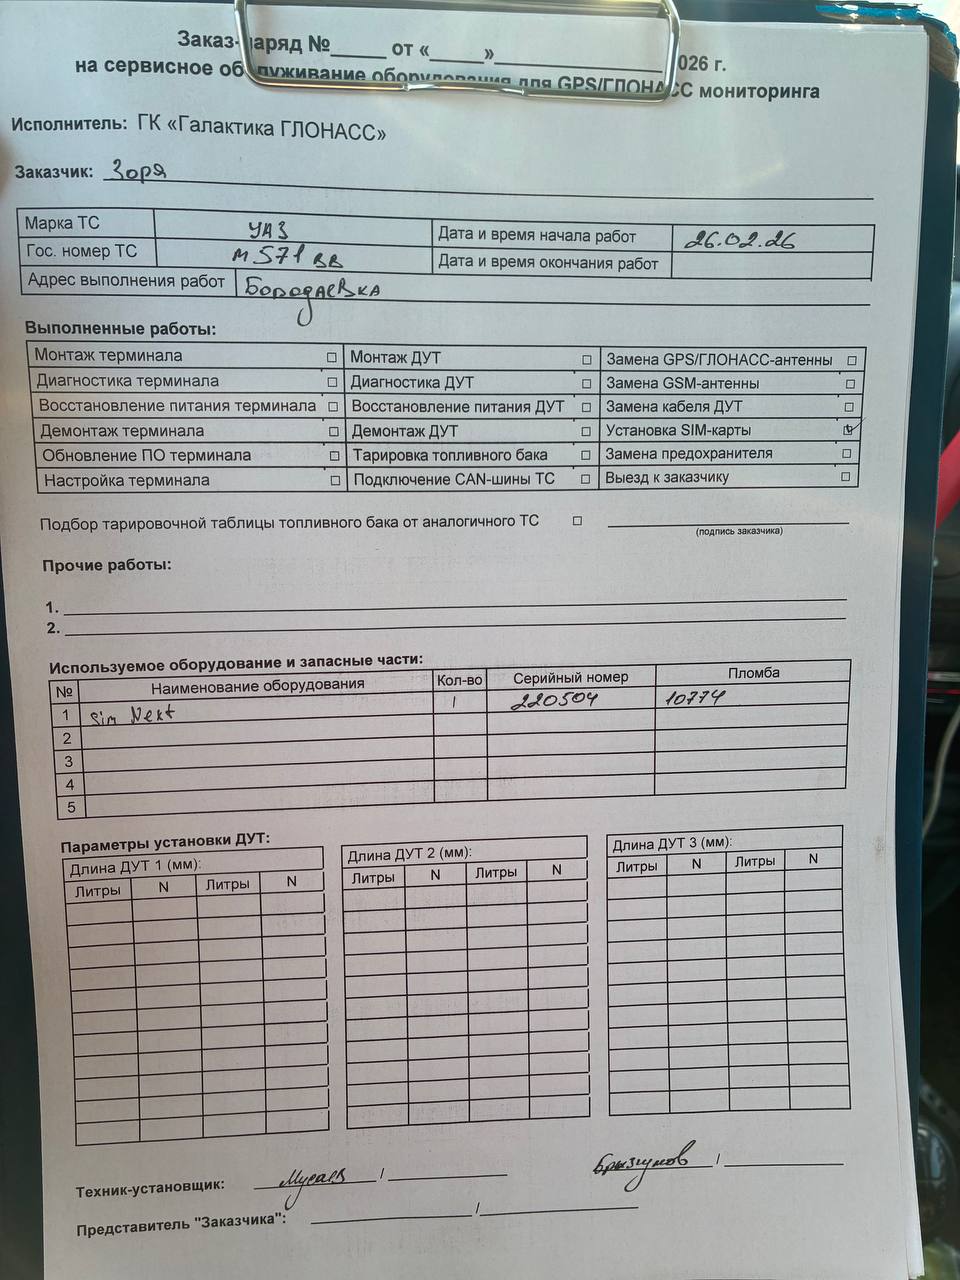 Заказ-наряд №_____ от «_____»_______________ 026 г.
на сервисное обслуживание оборудования для GPS/ГЛОНАСС мониторинга
Исполнитель: ГК «Галактика ГЛОНАСС»
Заказчик: Зоря
Марка ТС УАЗ Дата и время начала работ 26.02.26
Гос. номер ТС М 571 ВВ Дата и время окончания работ
Адрес выполнения работ Бородаевка
Выполненные работы:
Монтаж терминала ☐ Монтаж ДУТ ☐ Замена GPS/ГЛОНАСС-антенны ☐
Диагностика терминала ☐ Диагностика ДУТ ☐ Замена GSM-антенны ☐
Восстановление питания терминала ☐ Восстановление питания ДУТ ☐ Замена кабеля ДУТ ☐
Демонтаж терминала ☐ Демонтаж ДУТ ☐ Установка SIM-карты ☑
Обновление ПО терминала ☐ Тарировка топливного бака ☐ Замена предохранителя ☐
Настройка терминала ☐ Подключение CAN-шины ТС ☐ Выезд к заказчику ☐
Подбор тарировочной таблицы топливного бака от аналогичного ТС ☐
(подпись заказчика)
Прочие работы:
1.
2.
Используемое оборудование и запасные части:
№ Наименование оборудования Кол-во Серийный номер Пломба
1 Sim Next 1 220504 10774
2
3
4
5
Параметры установки ДУТ:
Длина ДУТ 1 (мм): Длина ДУТ 2 (мм): Длина ДУТ 3 (мм):
Литры N Литры N Литры N Литры N Литры N Литры N
Техник-установщик: Мусаев / Брызгунов /
Представитель "Заказчика": /